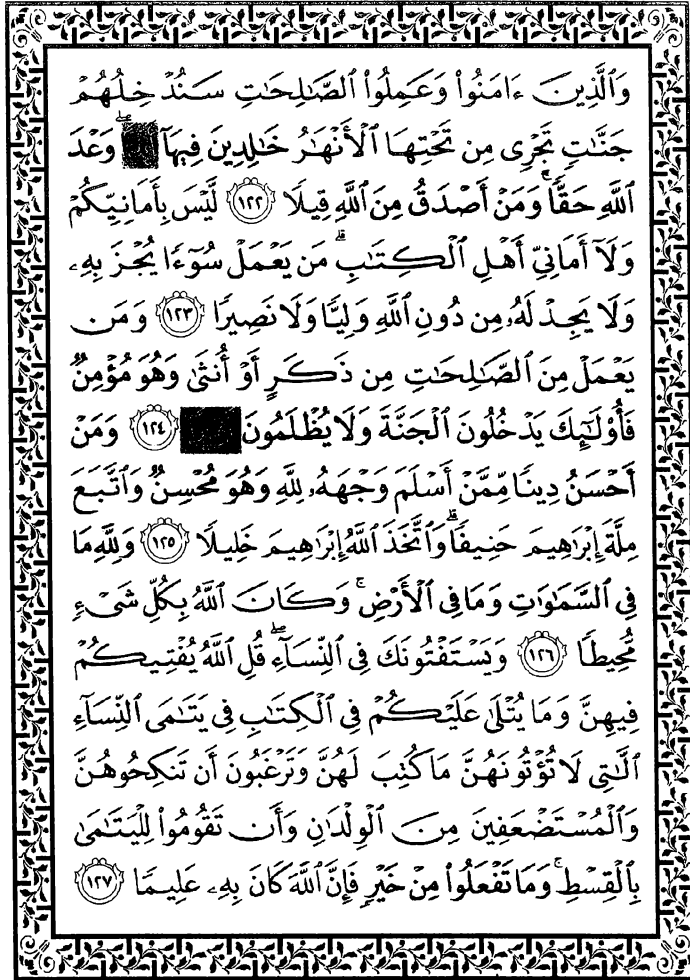 وَٱلَّذِينَ ءَامَنُوا۟ وَعَمِلُوا۟ ٱلصَّـٰلِحَـٰتِ سَنُدْخِلُهُمْ
جَنَّـٰتٍ تَجْرِى مِن تَحْتِهَا ٱلْأَنْهَـٰرُ خَـٰلِدِينَ فِيهَآ وَعْدَ
ٱللَّهِ حَقًّا ۚ وَمَنْ أَصْدَقُ مِنَ ٱللَّهِ قِيلًا ١٢٢ لَّيْسَ بِأَمَانِيِّكُمْ
وَلَآ أَمَانِىِّ أَهْلِ ٱلْكِتَـٰبِ ۗ مَن يَعْمَلْ سُوٓءًا يُجْزَ بِهِۦ
وَلَا يَجِدْ لَهُۥ مِن دُونِ ٱللَّهِ وَلِيًّا وَلَا نَصِيرًا ١٢٣ وَمَن
يَعْمَلْ مِنَ ٱلصَّـٰلِحَـٰتِ مِن ذَكَرٍ أَوْ أُنثَىٰ وَهُوَ مُؤْمِنٌ
فَأُو۟لَـٰٓئِكَ يَدْخُلُونَ ٱلْجَنَّةَ وَلَا يُظْلَمُونَ ١٢٤ وَمَنْ
أَحْسَنُ دِينًا مِّمَّنْ أَسْلَمَ وَجْهَهُۥ لِلَّهِ وَهُوَ مُحْسِنٌ وَٱتَّبَعَ
مِلَّةَ إِبْرَٰهِيمَ حَنِيفًا ۗ وَٱتَّخَذَ ٱللَّهُ إِبْرَٰهِيمَ خَلِيلًا ١٢٥ وَلِلَّهِ مَا
فِى ٱلسَّمَـٰوَٰتِ وَمَا فِى ٱلْأَرْضِ ۚ وَكَانَ ٱللَّهُ بِكُلِّ شَىْءٍ
مُّحِيطًا ١٢٦ وَيَسْتَفْتُونَكَ فِى ٱلنِّسَآءِ ۖ قُلِ ٱللَّهُ يُفْتِيكُمْ
فِيهِنَّ وَمَا يُتْلَىٰ عَلَيْكُمْ فِى ٱلْكِتَـٰبِ فِى يَتَـٰمَى ٱلنِّسَآءِ
ٱلَّـٰتِى لَا تُؤْتُونَهُنَّ مَا كُتِبَ لَهُنَّ وَتَرْغَبُونَ أَن تَنكِحُوهُنَّ
وَٱلْمُسْتَضْعَفِينَ مِنَ ٱلْوِلْدَٰنِ وَأَن تَقُومُوا۟ لِلْيَتَـٰمَىٰ
بِٱلْقِسْطِ ۚ وَمَا تَفْعَلُوا۟ مِنْ خَيْرٍ فَإِنَّ ٱللَّهَ كَانَ بِهِۦ عَلِيمًا ١٢٧